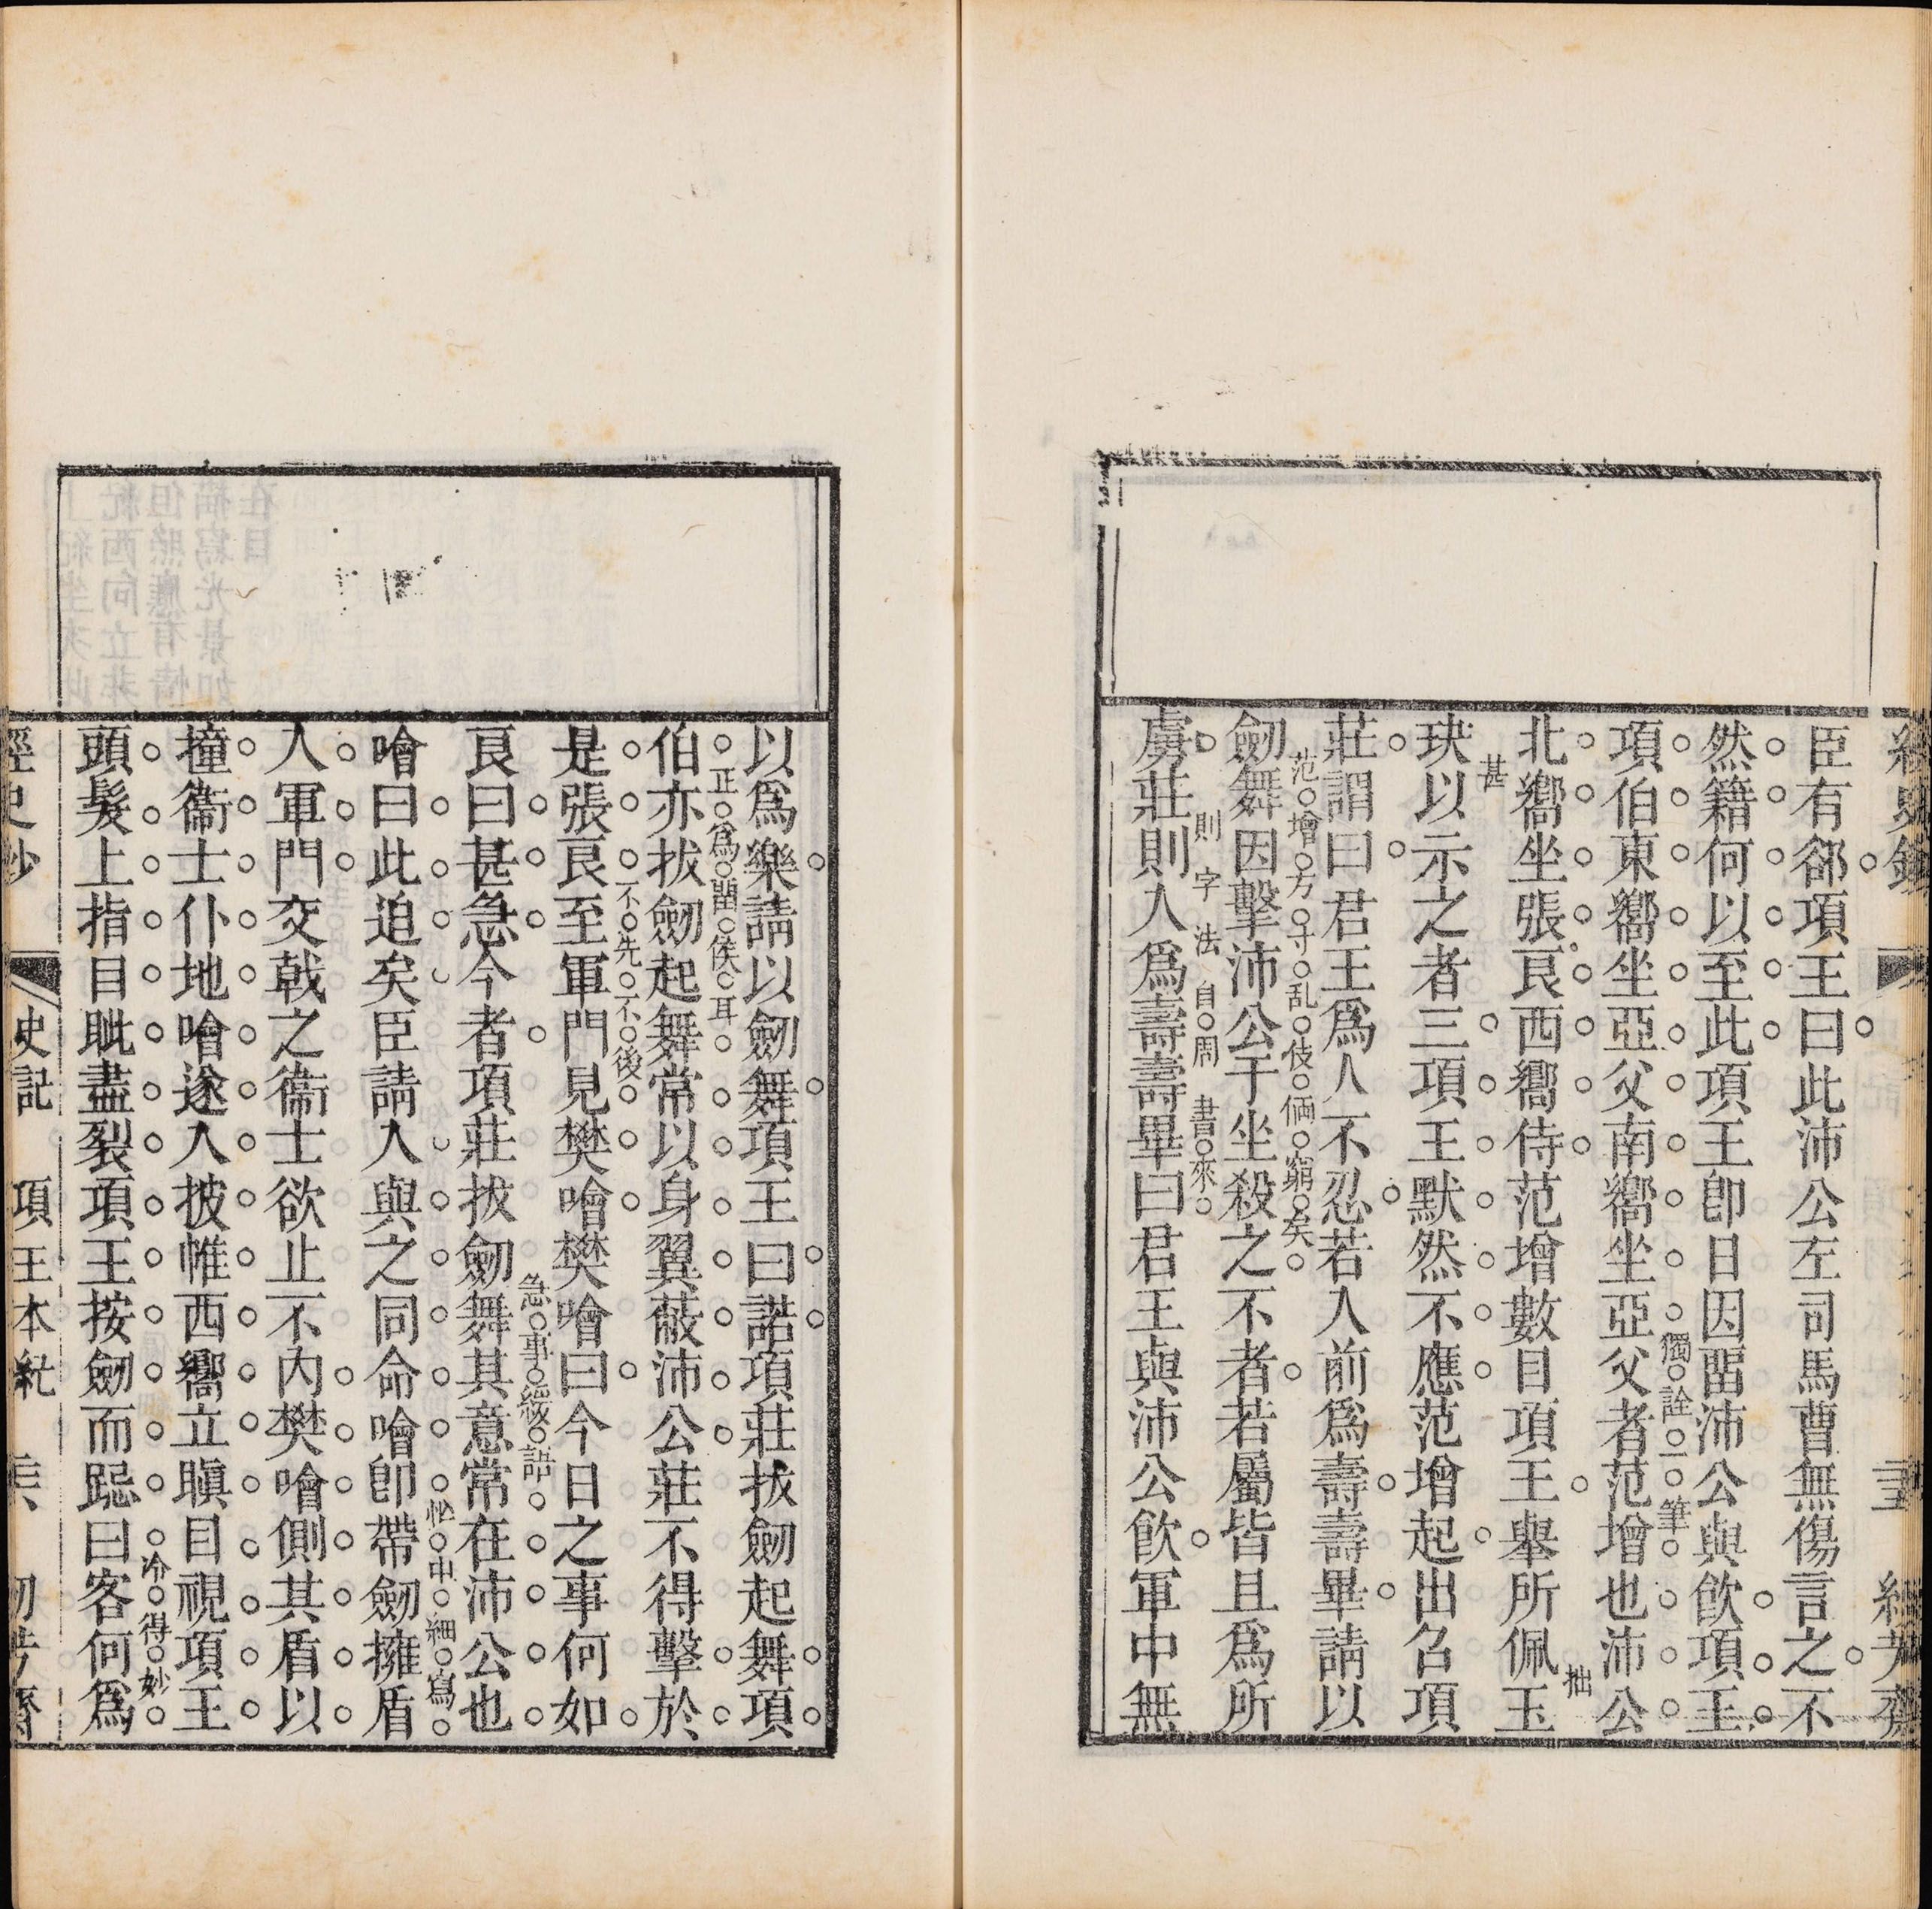 臣有郤項王曰此沛公左司馬曹無傷言之不
然籍何以至此項王卽日因畱沛公與飮項王
項伯東嚮坐亞父南嚮坐亞父者范增也沛公
獨詮一筆
北嚮坐張良西嚮侍范增數目項王舉所佩玉
拙
甚
玦以示之者三項王默然不應范增起出召項
莊謂曰君王爲人不忍若入前爲壽壽畢請以
范增方寸乱伎倆窮矣
劒舞因擊沛公于坐殺之不者若屬皆且爲所
則字法自周書來
虜莊則入爲壽壽畢曰君王與沛公飮軍中無
以爲樂請以劒舞項王曰諾項莊拔劒起舞項
正爲畱侯耳
伯亦拔劒起舞常以身翼蔽沛公莊不得擊於
不先不後
是張良至軍門見樊噲樊噲曰今日之事何如
急事緩語
良曰甚急今者項莊拔劒舞其意常在沛公也
忙中細寫
噲曰此迫矣臣請入與之同命噲卽帶劒擁盾
入軍門交戟之衞士欲止不內樊噲側其盾以
撞衞士仆地噲遂入披帷西嚮立瞋目視項王
冷得妙
頭髮上指目眦盡裂項王按劒而跽曰客何爲
史記 項王本紀